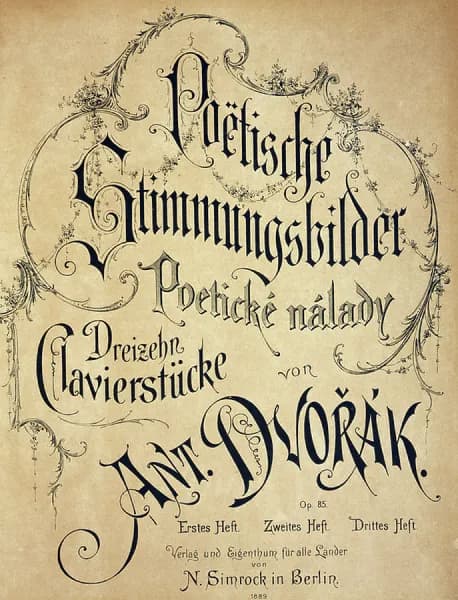 Poëtische
Stimmungsbilder
Poetické nálady
Dreizehn
Clavierstücke
von
Ant. Dvořák.
Op. 85.
Erstes Heft. Zweites Heft. Drittes Heft
Verlag und Eigenthum für alle Länder
von
N. Simrock in Berlin.
1889